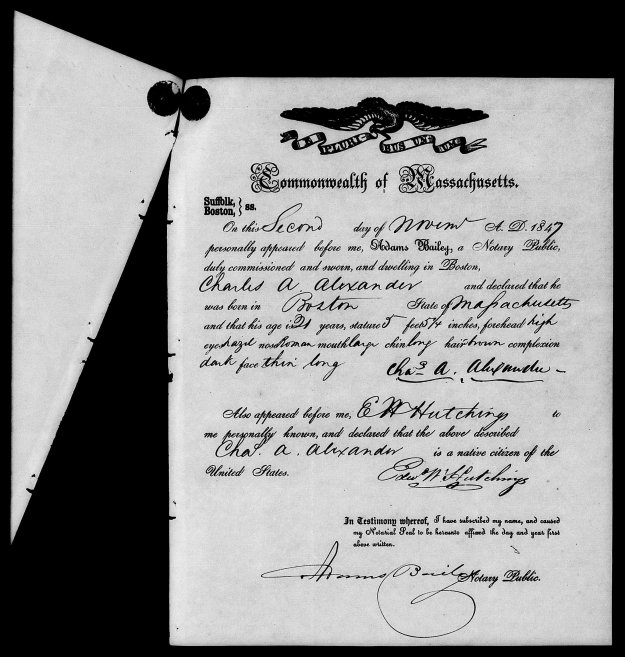 E PLURIBUS UNUM
Commonwealth of Massachusetts.
Suffolk, } ss.
Boston,
On this Second day of Novemr A. D. 1847
personally appeared before me, Adams Bailey, a Notary Public,
duly commissioned and sworn, and dwelling in Boston,
Charles A Alexander and declared that he
was born in Boston State of Massachusetts
and that his age is 21 years, stature 5 feet inches, forehead high
eyes hazel nose Roman mouth large chin long hair brown complexion
dark face thin long Chas. A. Alexander
Also appeared before me, E W Hutchings to
me personally known, and declared that the above described
Chas. A. Alexander is a native citizen of the
United States. Edwd W Hutchings
In Testimony whereof, I have subscribed my name, and caused
my Notarial Seal to be hereunto affixed the day and year first
above written.
Adams Bailey Notary Public.